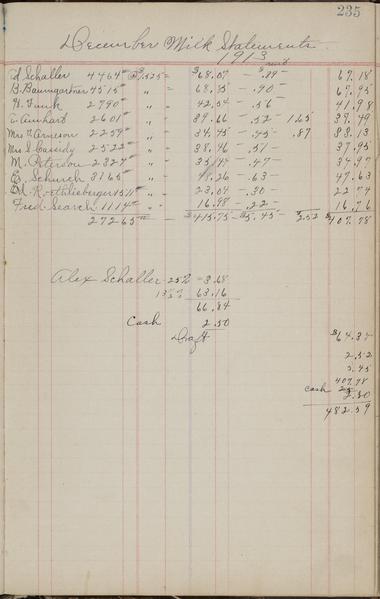 235
December Milk Statements
1913
A Schaller 4464# @ $1.525 = $68.07 - $.89 - 67.18
B. Baumgartner 4515# " = 68.85 - .90 - 67.95
H. Funk 2790# " = 42.54 - .56 - 41.98
C. Amhart 2601# " = 39.66 - .52 1.65 38.49
Mrs. Arneson 2259# " - 34.45 - .45 - .87 33.13
Mrs. S Cassidy 2522# " - 38.46 - .51 - 37.95
M. Peterson 2327# " - 35.44 - .47 - 34.97
E. Schurch 3165# " - 48.26 - .63 - 47.63
1511# " - 23.04 - .30 - 22 74
Fred Search 1114# " - 16.98 - .22 - 16.76
27265# - $415.75 - $5.45 - 2.52 $407.78
Alex Schaller 25% - 3.68
63.16
66.84
Cash 2.50
Draft $64.34
2.52
5.45
407.78
cash 2.50
482.59